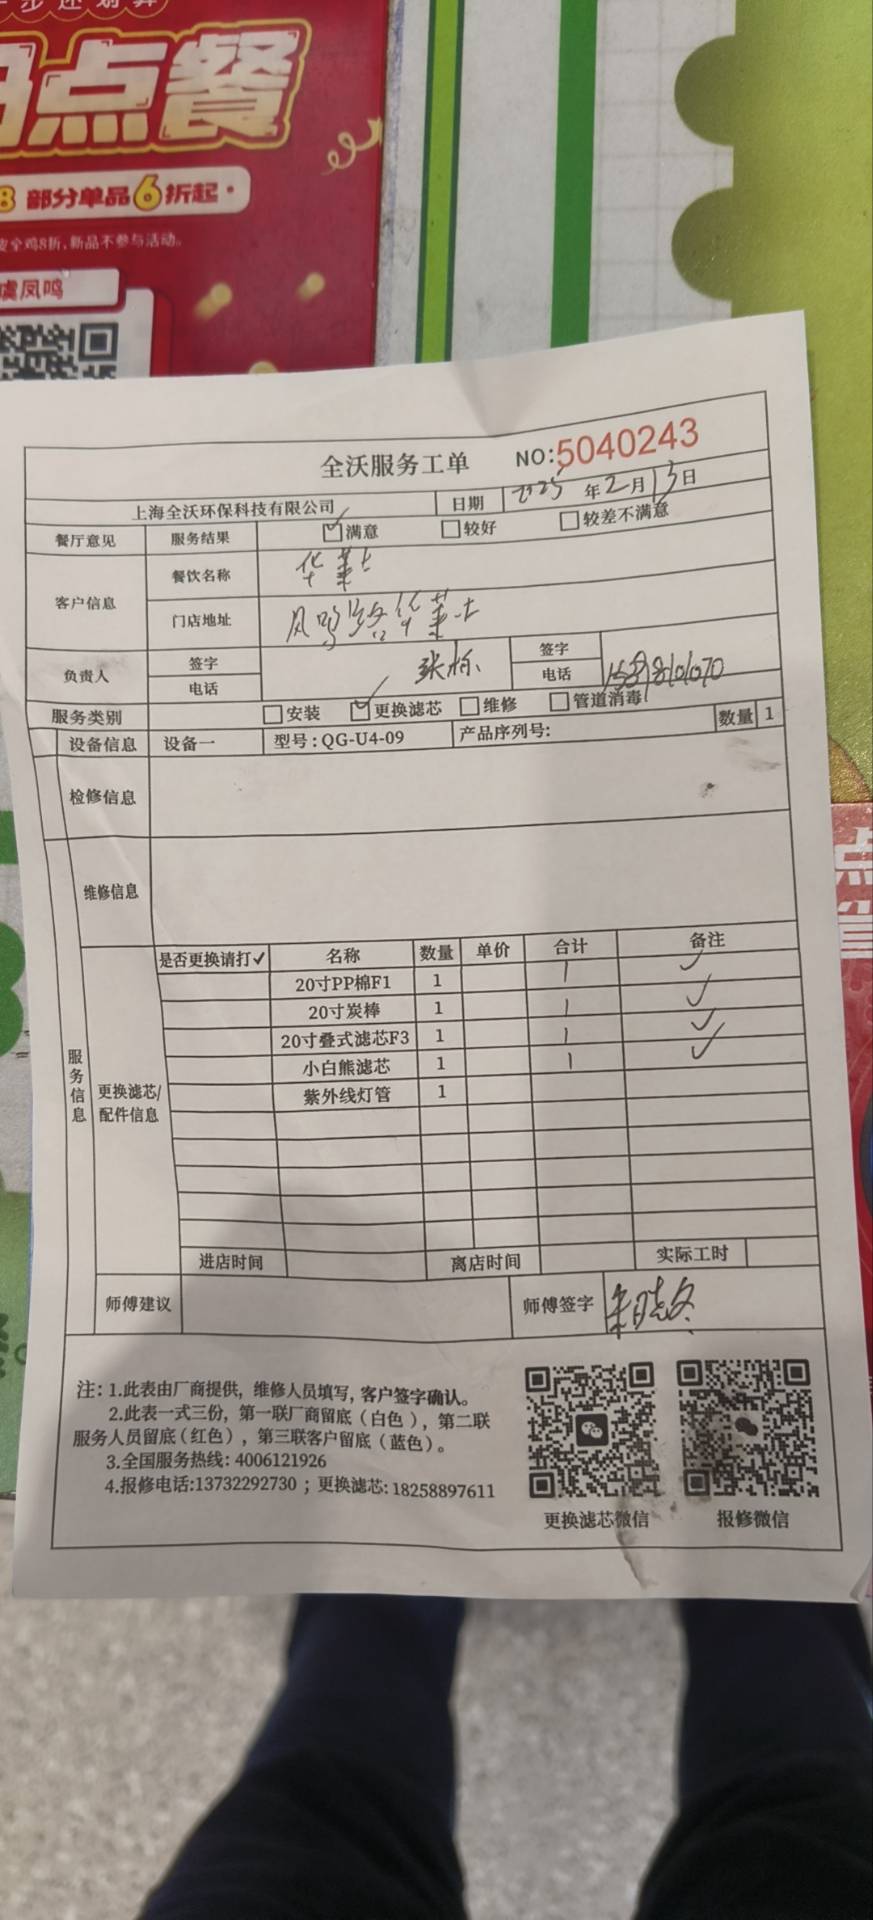 点餐
8 部分单品6折起·
鸡8折,新品不参与活动。
虞凤鸣
全沃服务工单 NO:5040243
上海全沃环保科技有限公司 日期 2025年2月13日
餐厅意见 服务结果 ☑满意 □较好 □较差不满意
客户信息 餐饮名称 华莱士
门店地址 凤鸣路华莱士
负责人 签字 张栋 签字
电话 电话
服务类别 □安装 ☑更换滤芯 □维修 □管道消毒
设备信息 设备一 型号:QG-U4-09 产品序列号: 数量 1
检修信息
维修信息
服务信息
更换滤芯/配件信息
是否更换请打✓ 名称 数量 单价 合计 备注
20寸PP棉F1 1 1 ✓
20寸炭棒 1 1 ✓
20寸叠式滤芯F3 1 1 ✓
小白熊滤芯 1 1 ✓
紫外线灯管 1
进店时间 离店时间 实际工时
师傅建议 师傅签字 朱晓冬
注:1.此表由厂商提供,维修人员填写,客户签字确认。
2.此表一式三份,第一联厂商留底(白色),第二联
服务人员留底(红色),第三联客户留底(蓝色)。
3.全国服务热线:4006121926
4.报修电话:13732292730;更换滤芯:18258897611
更换滤芯微信 报修微信